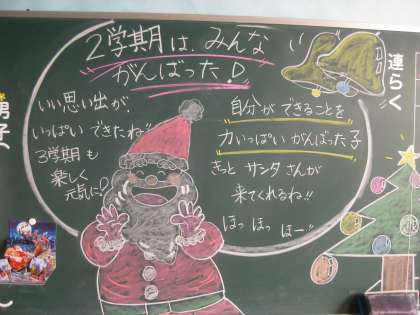 2学期は、みんな
がんばった!
いい思い出が、
いっぱいできたね!!
3学期も
楽しく
元気に!
自分ができることを
力いっぱいがんばった子
きっとサンタさんが
来てくれるね!!
ほっほっほー!!
連らく
男子